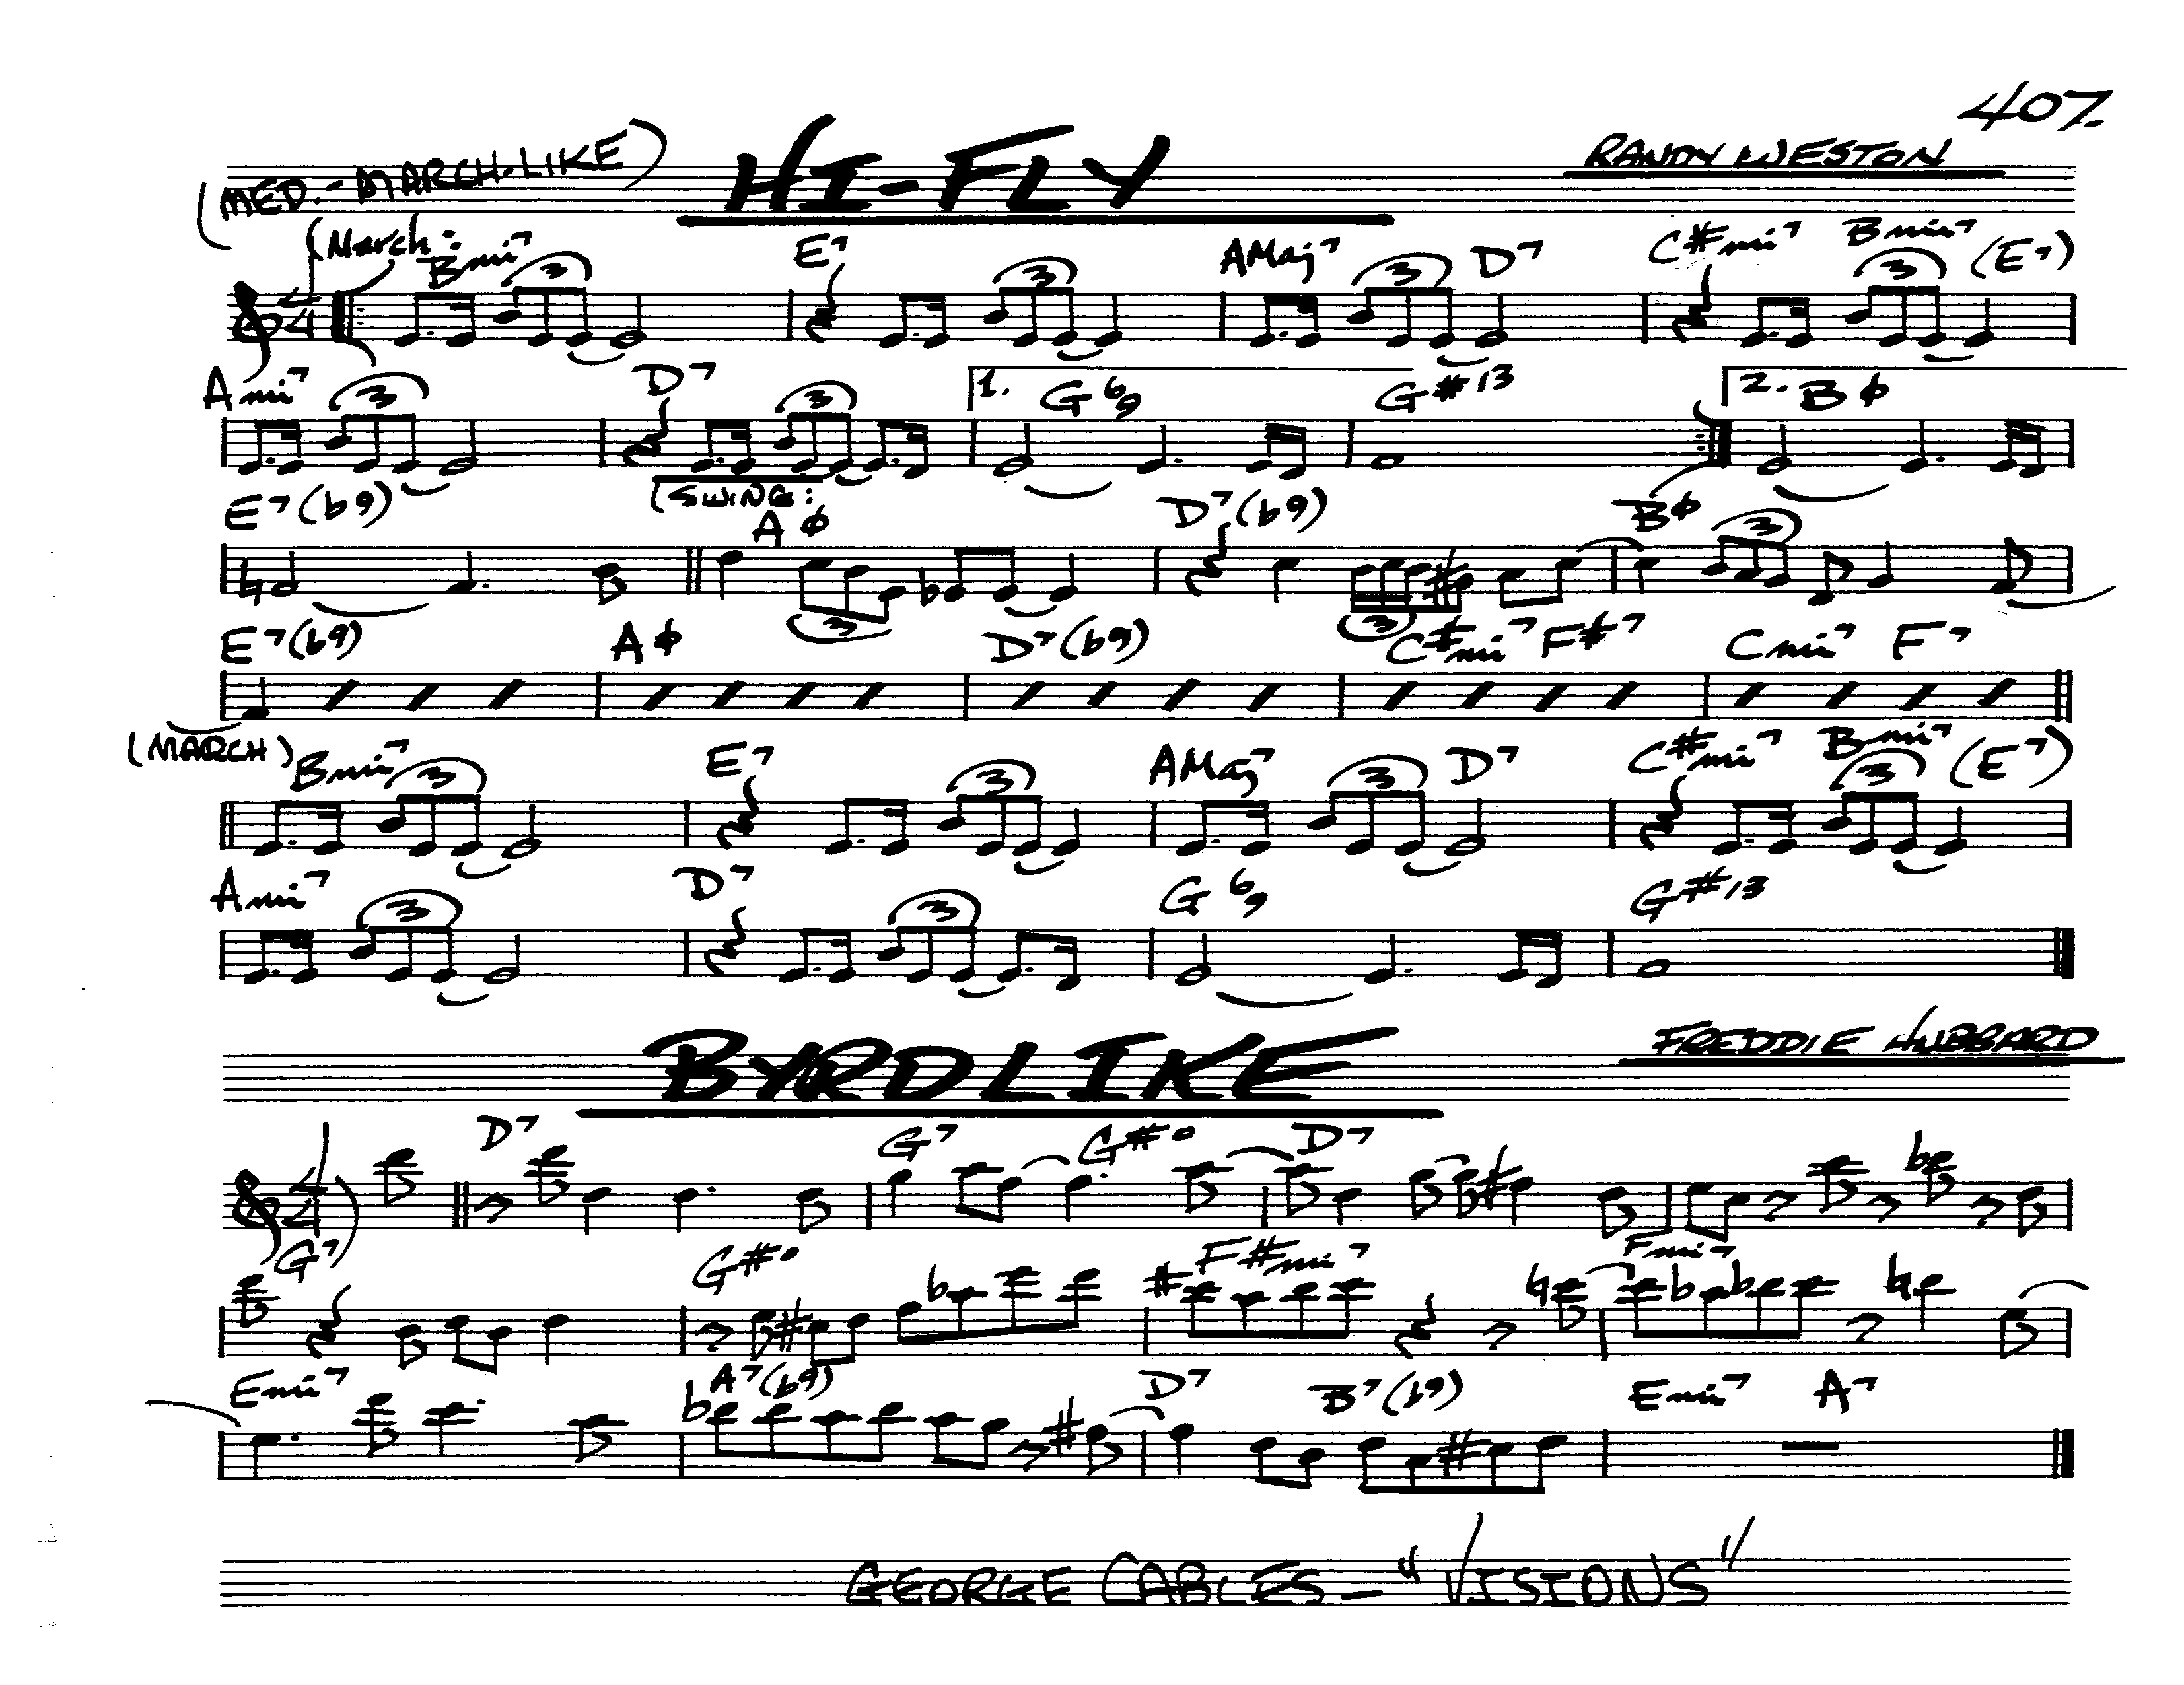 407.
(MED.-MARCH-LIKE) HI-FLY RANDY WESTON
(March:
Bmi7 E7 AMaj7 D7 C#mi7 Bmi7 (E7)
3 3 3 3
4/4
Ami7 D7 1. G6/9 G#13 2. Bø
3 3
(SWING:
E7(b9) Aø D7(b9) Bø
3 3 3
E7(b9) Aø D7(b9) C#mi7 F#7 Cmi7 F7
(MARCH) Bmi7 E7 AMaj7 D7 C#mi7 Bmi7 (E7)
3 3 3 3
Ami7 D7 G6/9 G#13
3 3
BYRDLIKE FREDDIE HUBBARD
D7 G7 G#o D7
4/4
G7 G#o F#mi7 Fmi7
Emi7 A7(b9) D7 B7(b9) Emi7 A7
GEORGE CABLES - "VISIONS"